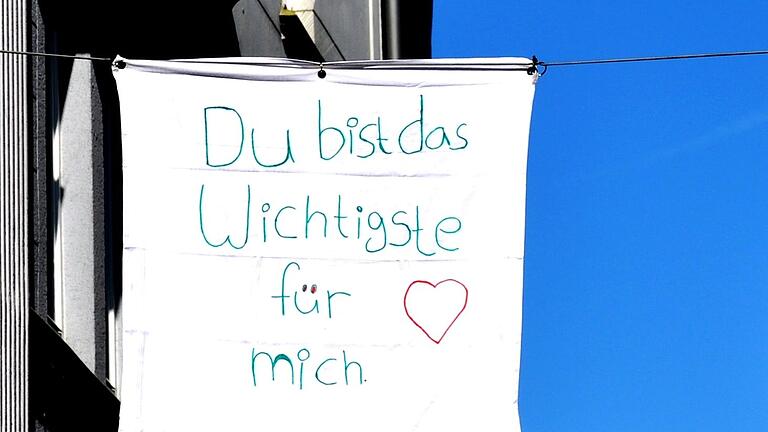 Du bist das
Wichtigste
für
mich.